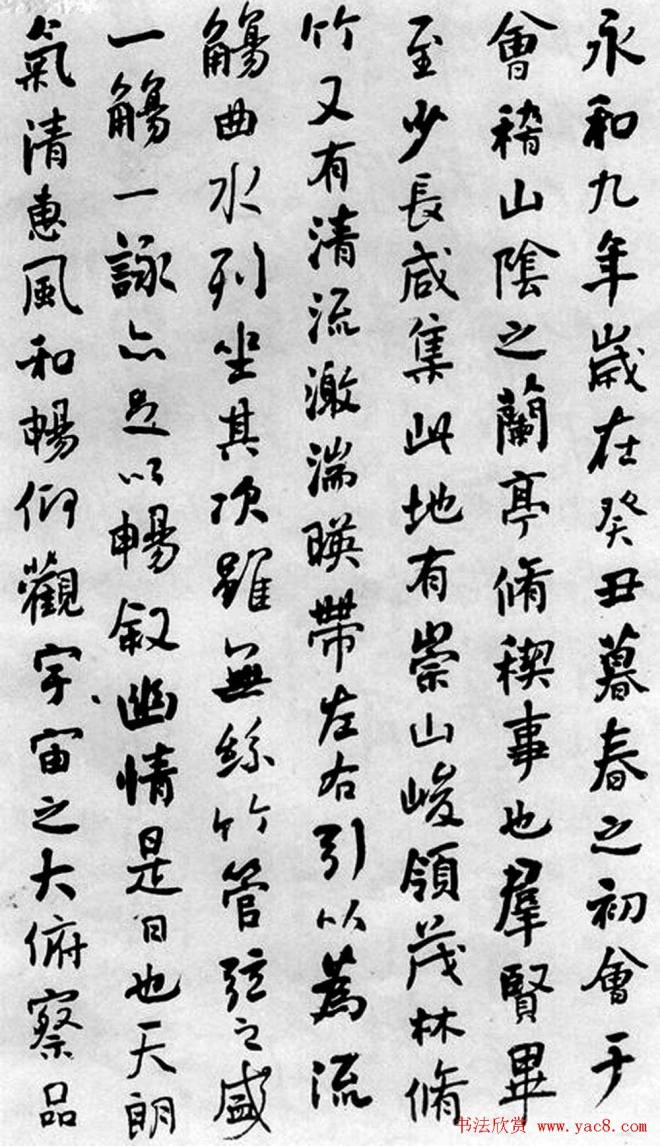 永和九年歲在癸丑暮春之初會于
會稽山陰之蘭亭脩稧事也羣賢畢
至少長咸集此地有崇山峻領茂林脩
竹又有清流激湍暎帶左右引以為流
觴曲水列坐其次雖無絲竹管弦之盛
一觴一詠亦足以暢叙幽情是日也天朗
氣清惠風和暢仰觀宇宙之大俯察品
书法欣赏 www.yac8.com